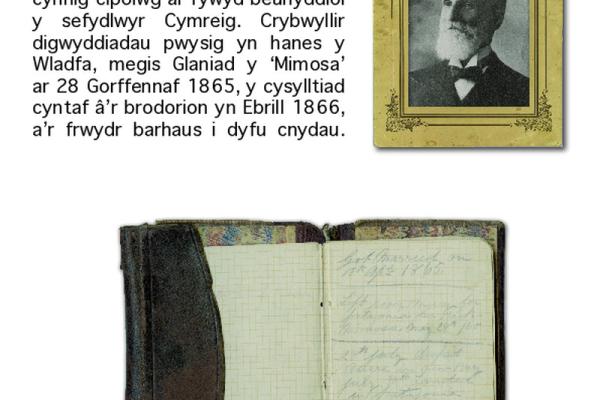 cynnig cipolwg ar fywyd beunyddiol
y sefydlwyr Cymreig. Crybwyllir
digwyddiadau pwysig yn hanes y
Wladfa, megis Glaniad y ‘Mimosa’
ar 28 Gorffennaf 1865, y cysylltiad
cyntaf â’r brodorion yn Ebrill 1866,
a’r frwydr barhaus i dyfu cnydau.
Got Married on
1865
Left
for
May
July
July